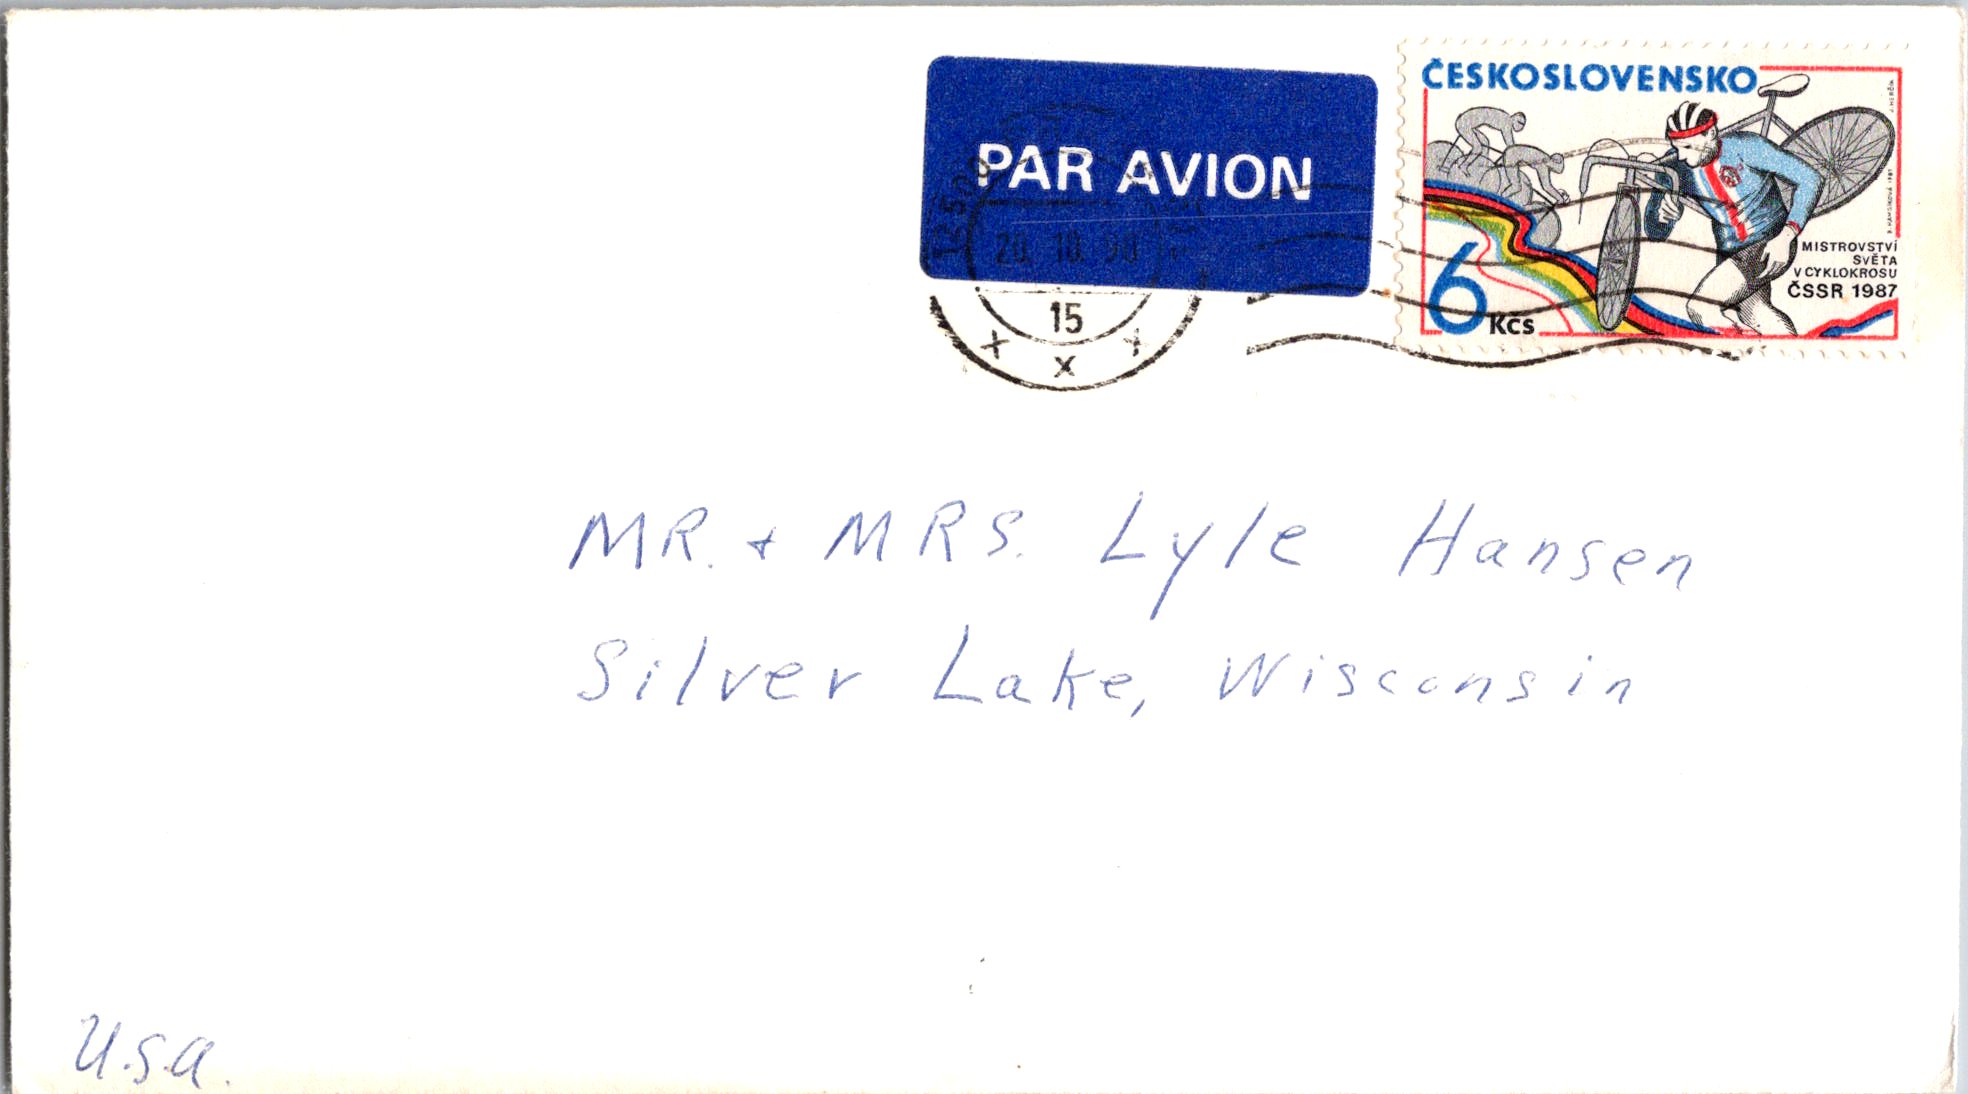 PAR AVION
20. 10. 90
15
x x x
ČESKOSLOVENSKO
MISTROVSTVÍ
SVĚTA
V CYKLOKROSU
ČSSR 1987
6 Kčs
MR. + MRS. Lyle Hansen
Silver Lake, Wisconsin
U.S.A.